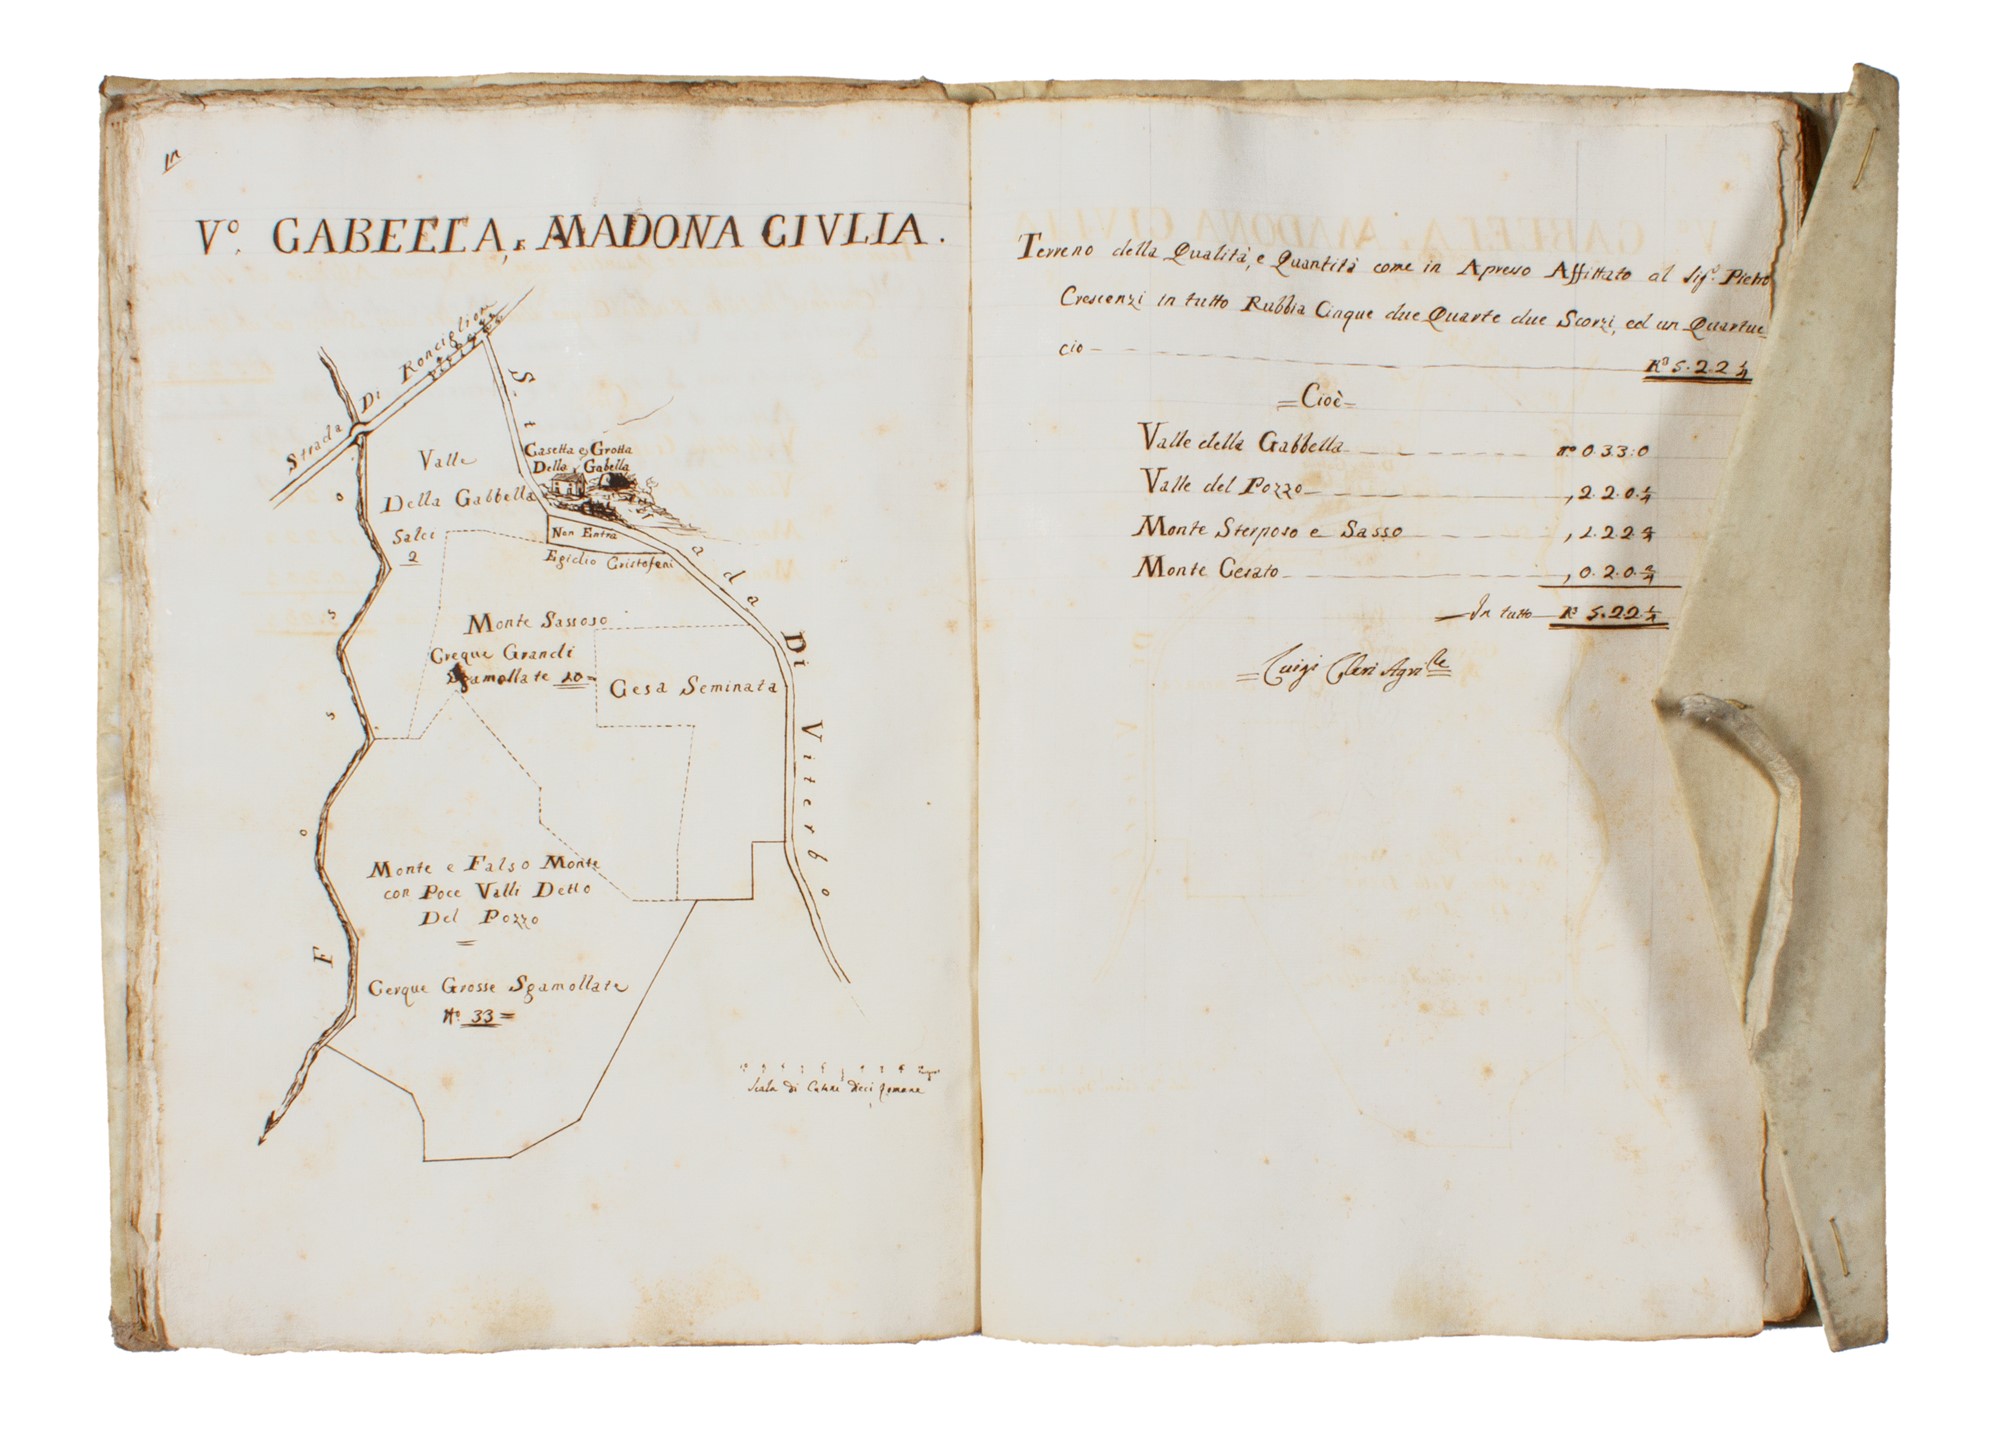 Vº. GABELLA, E MADONA GIVLIA.
Strada Di Ronciglione
Strada Di Viterbo
Fosso
Valle
Della Gabbella
Salci
2
Casetta e Grotta
Della Gabella
Non Entra
Egidio Cristofari
Monte Sassoso
Creque Grandi
Sgamollate 10=
Cesa Seminata
Monte e Falso Monte
con Poce Valli Detto
Del Pozzo
Cerque Grosse Sgamollate
Nº 33=
Scala di Catene Dieci Romane
Terreno della Qualità, e Quantità come in Apresso Affittato al Sigr. Pietro
Crescenzi in tutto Rubbia Cinque due Quarte due Scorzi, ed un Quartuc-
cio — Rª 5.2.2 1/4
=Cioè=
Valle della Gabbella — rª 0.3.3:0
Valle del Pozzo — , 2.2.0.1/4
Monte Sterposo e Sasso — , 1.2.2.2/4
Monte Cesato — , 0.2.0.2/4
In tutto Rª 5.22.1/4
Luigi